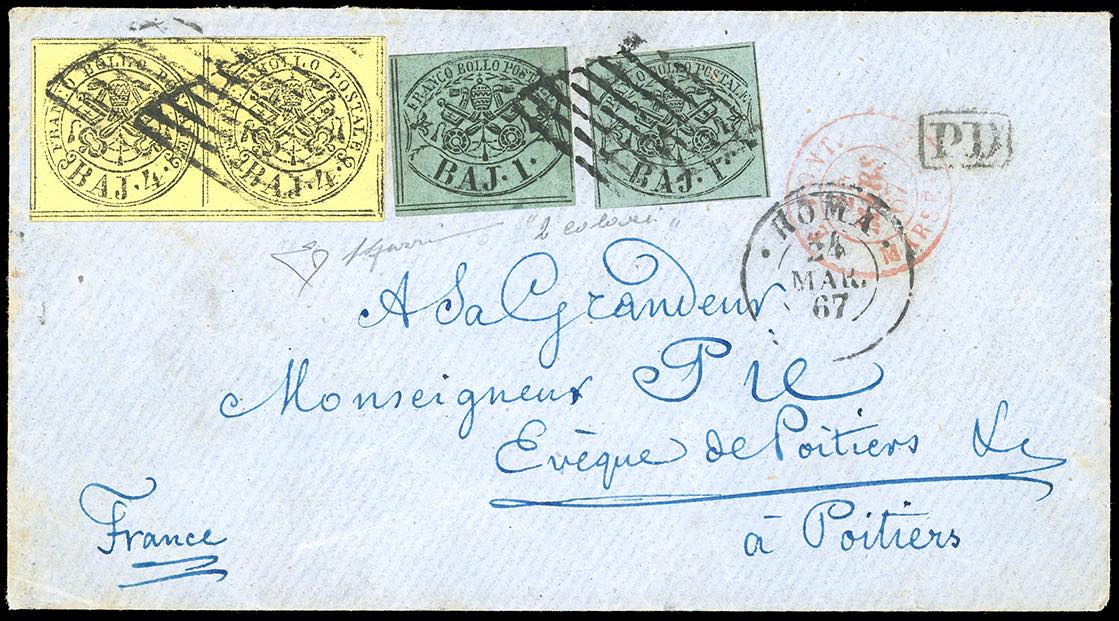 FRANCO BOLLO POSTALE
BAJ. 4. 8.
FRANCO BOLLO POSTALE
BAJ. 4. 8.
FRANCO BOLLO POSTALE
7 1
BAJ. 1.
FRANCO BOLLO POSTALE
7 1
BAJ. 1.
P.D.
ROMA
24
MAR.
67
"2 colori"
A Sa Grandeur
Monseigneur Pie
Evêque de Poitiers &c
à Poitiers
France